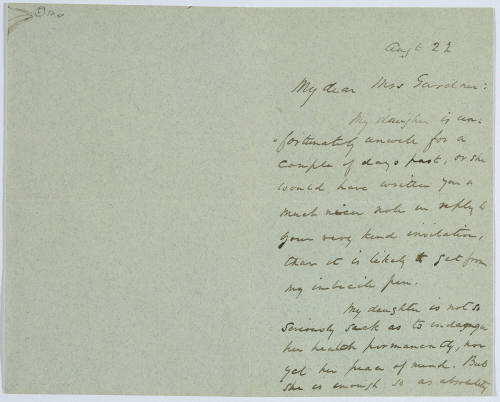 Augt 22
My dear Mrs Gardner:
My daughter is un-
fortunately unwell for a
couple of days past, or she
would have written you a
much nicer note in reply to
your very kind invitation,
than it is likely to get from
my imbecile pen.
My daughter is not so
seriously sick as to endanger
her health permanently, nor
yet her peace of mind. But
she is enough so as absolutely